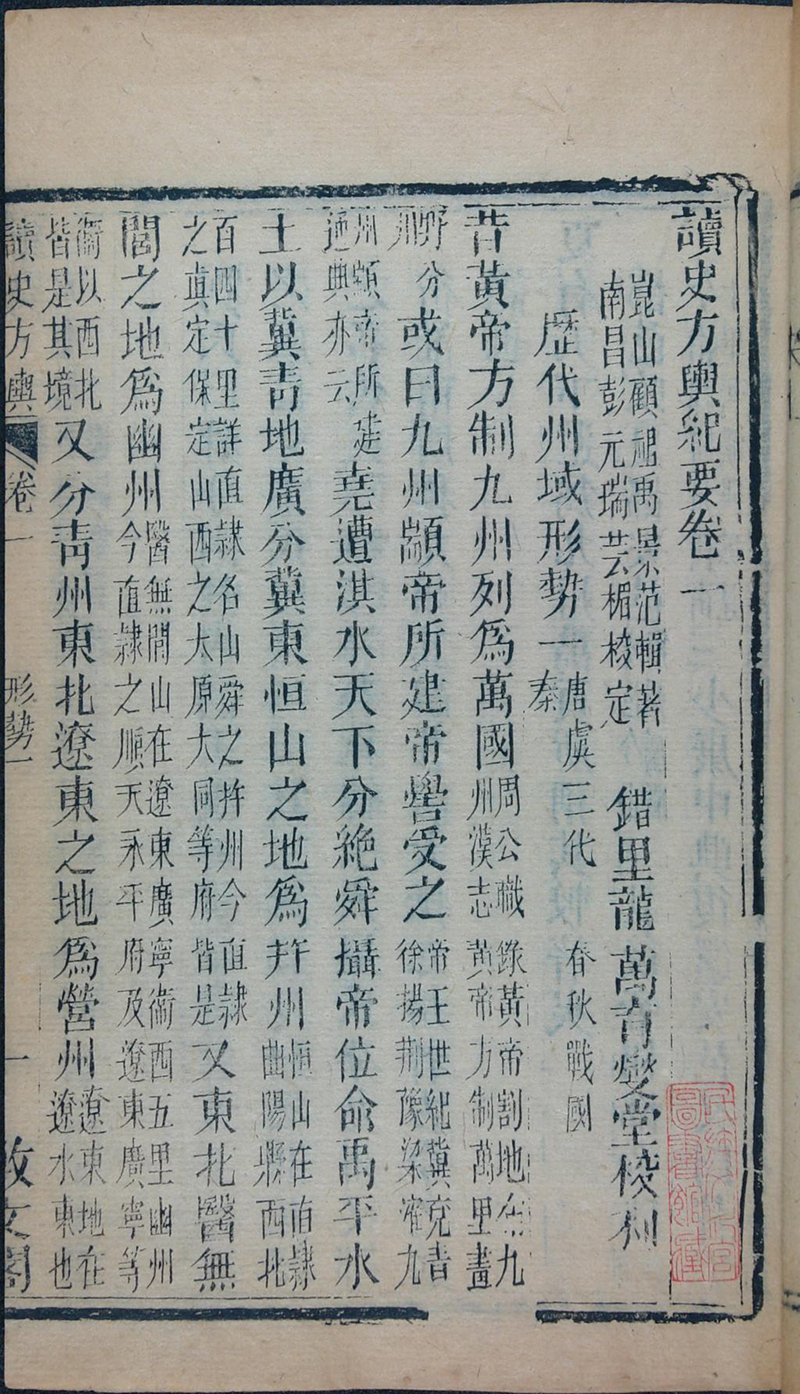 讀史方輿紀要卷一
崑山顧祖禹景范輯著
南昌彭元瑞芸楣校定
錯里龍萬育燮堂校刊
歷代州域形勢一 唐虞三代 春秋戰國 秦
昔黃帝方制九州列爲萬國 周公職錄黃帝割地布九州漢志黃帝方制萬里畫
野分州 或曰九州顓帝所建帝嚳受之 帝王世紀冀兗青徐揚荆豫梁雍九
州顓帝所建通典亦云 堯遭洪水天下分絶舜攝帝位命禹平水
土以冀青地廣分冀東恒山之地爲并州 恒山在直隸曲陽縣西北
百四十里詳直隸名山舜之并州今直隸之真定保定山西之太原大同等府皆是 又東北醫無
閭之地爲幽州 醫無閭山在遼東廣寧衛西五里幽州今直隸之順天永平府及遼東廣寧等
衛以西北皆是其境 又分青州東北遼東之地爲營州 遼東地在遼水東也
讀史方輿 卷一 形勢一 一 敷文閣